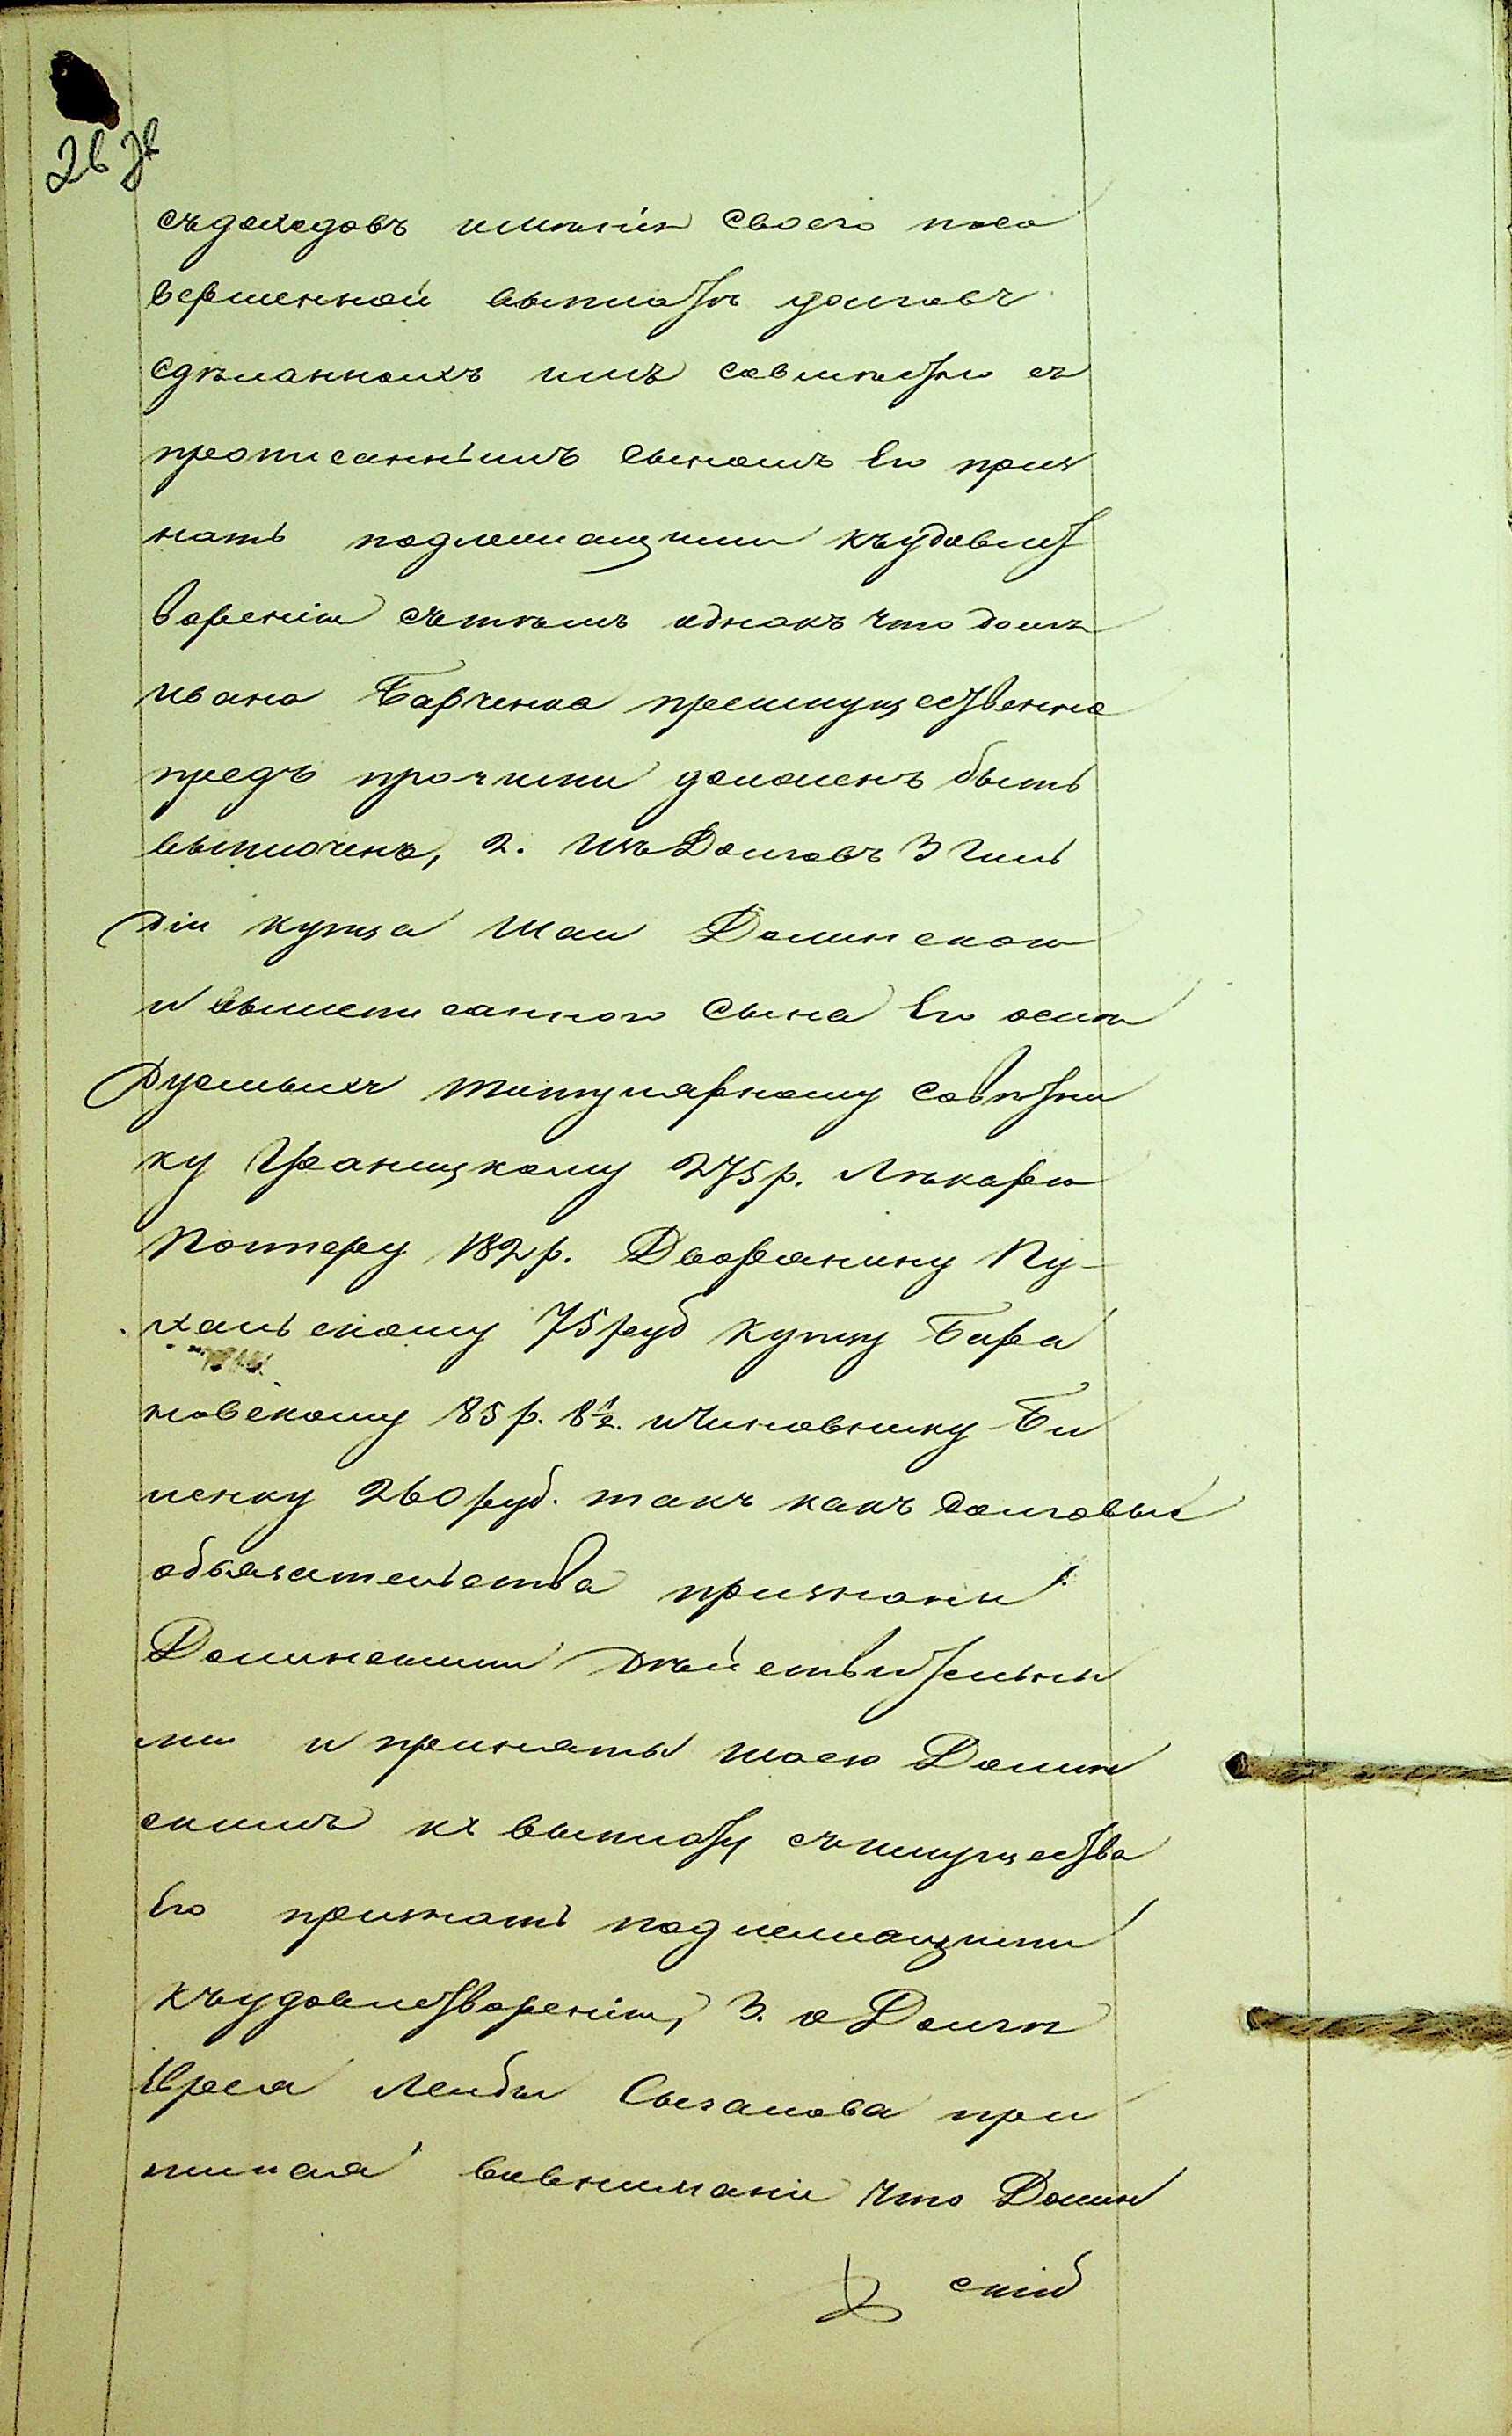 26 зв
съдоходовъ имѣнія своего посо
вершенной выплатѣ долговъ
сдѣланныхъ имъ совмѣстно съ
прописаннымъ сыномъ Его приз
нать подлежащими къудовлет
воренію съ тѣмъ однакъ что долгъ
ивана Барченка преимуществѣнно
предъ прочими долженъ быть
выплоченъ, 2. изъ Долговъ 3 Гиль
діи купца Шаи Долинского
и вышеписанного сына Его осипа
Дуемыхъ титулярному совѣтни
ку Краницкому 275 р. Лѣкарю
Поттеру 182 р. Дворянину Пу-
хальскому 75 руб купцу Бара
новскому 85 р. 8½. и Чиновнику Би
ленку 260 руб. такъ какъ долговые
обязательства признаны
Долинскими дѣйствительны
ми и приняты шаею Долин
скимъ къ выплату съимущества
Его признать подлежащими
къудовлетворенію, 3. о Долгѣ
Еврея Лейбы Сыгалова при
нимая вовниманіе что Долин
скій